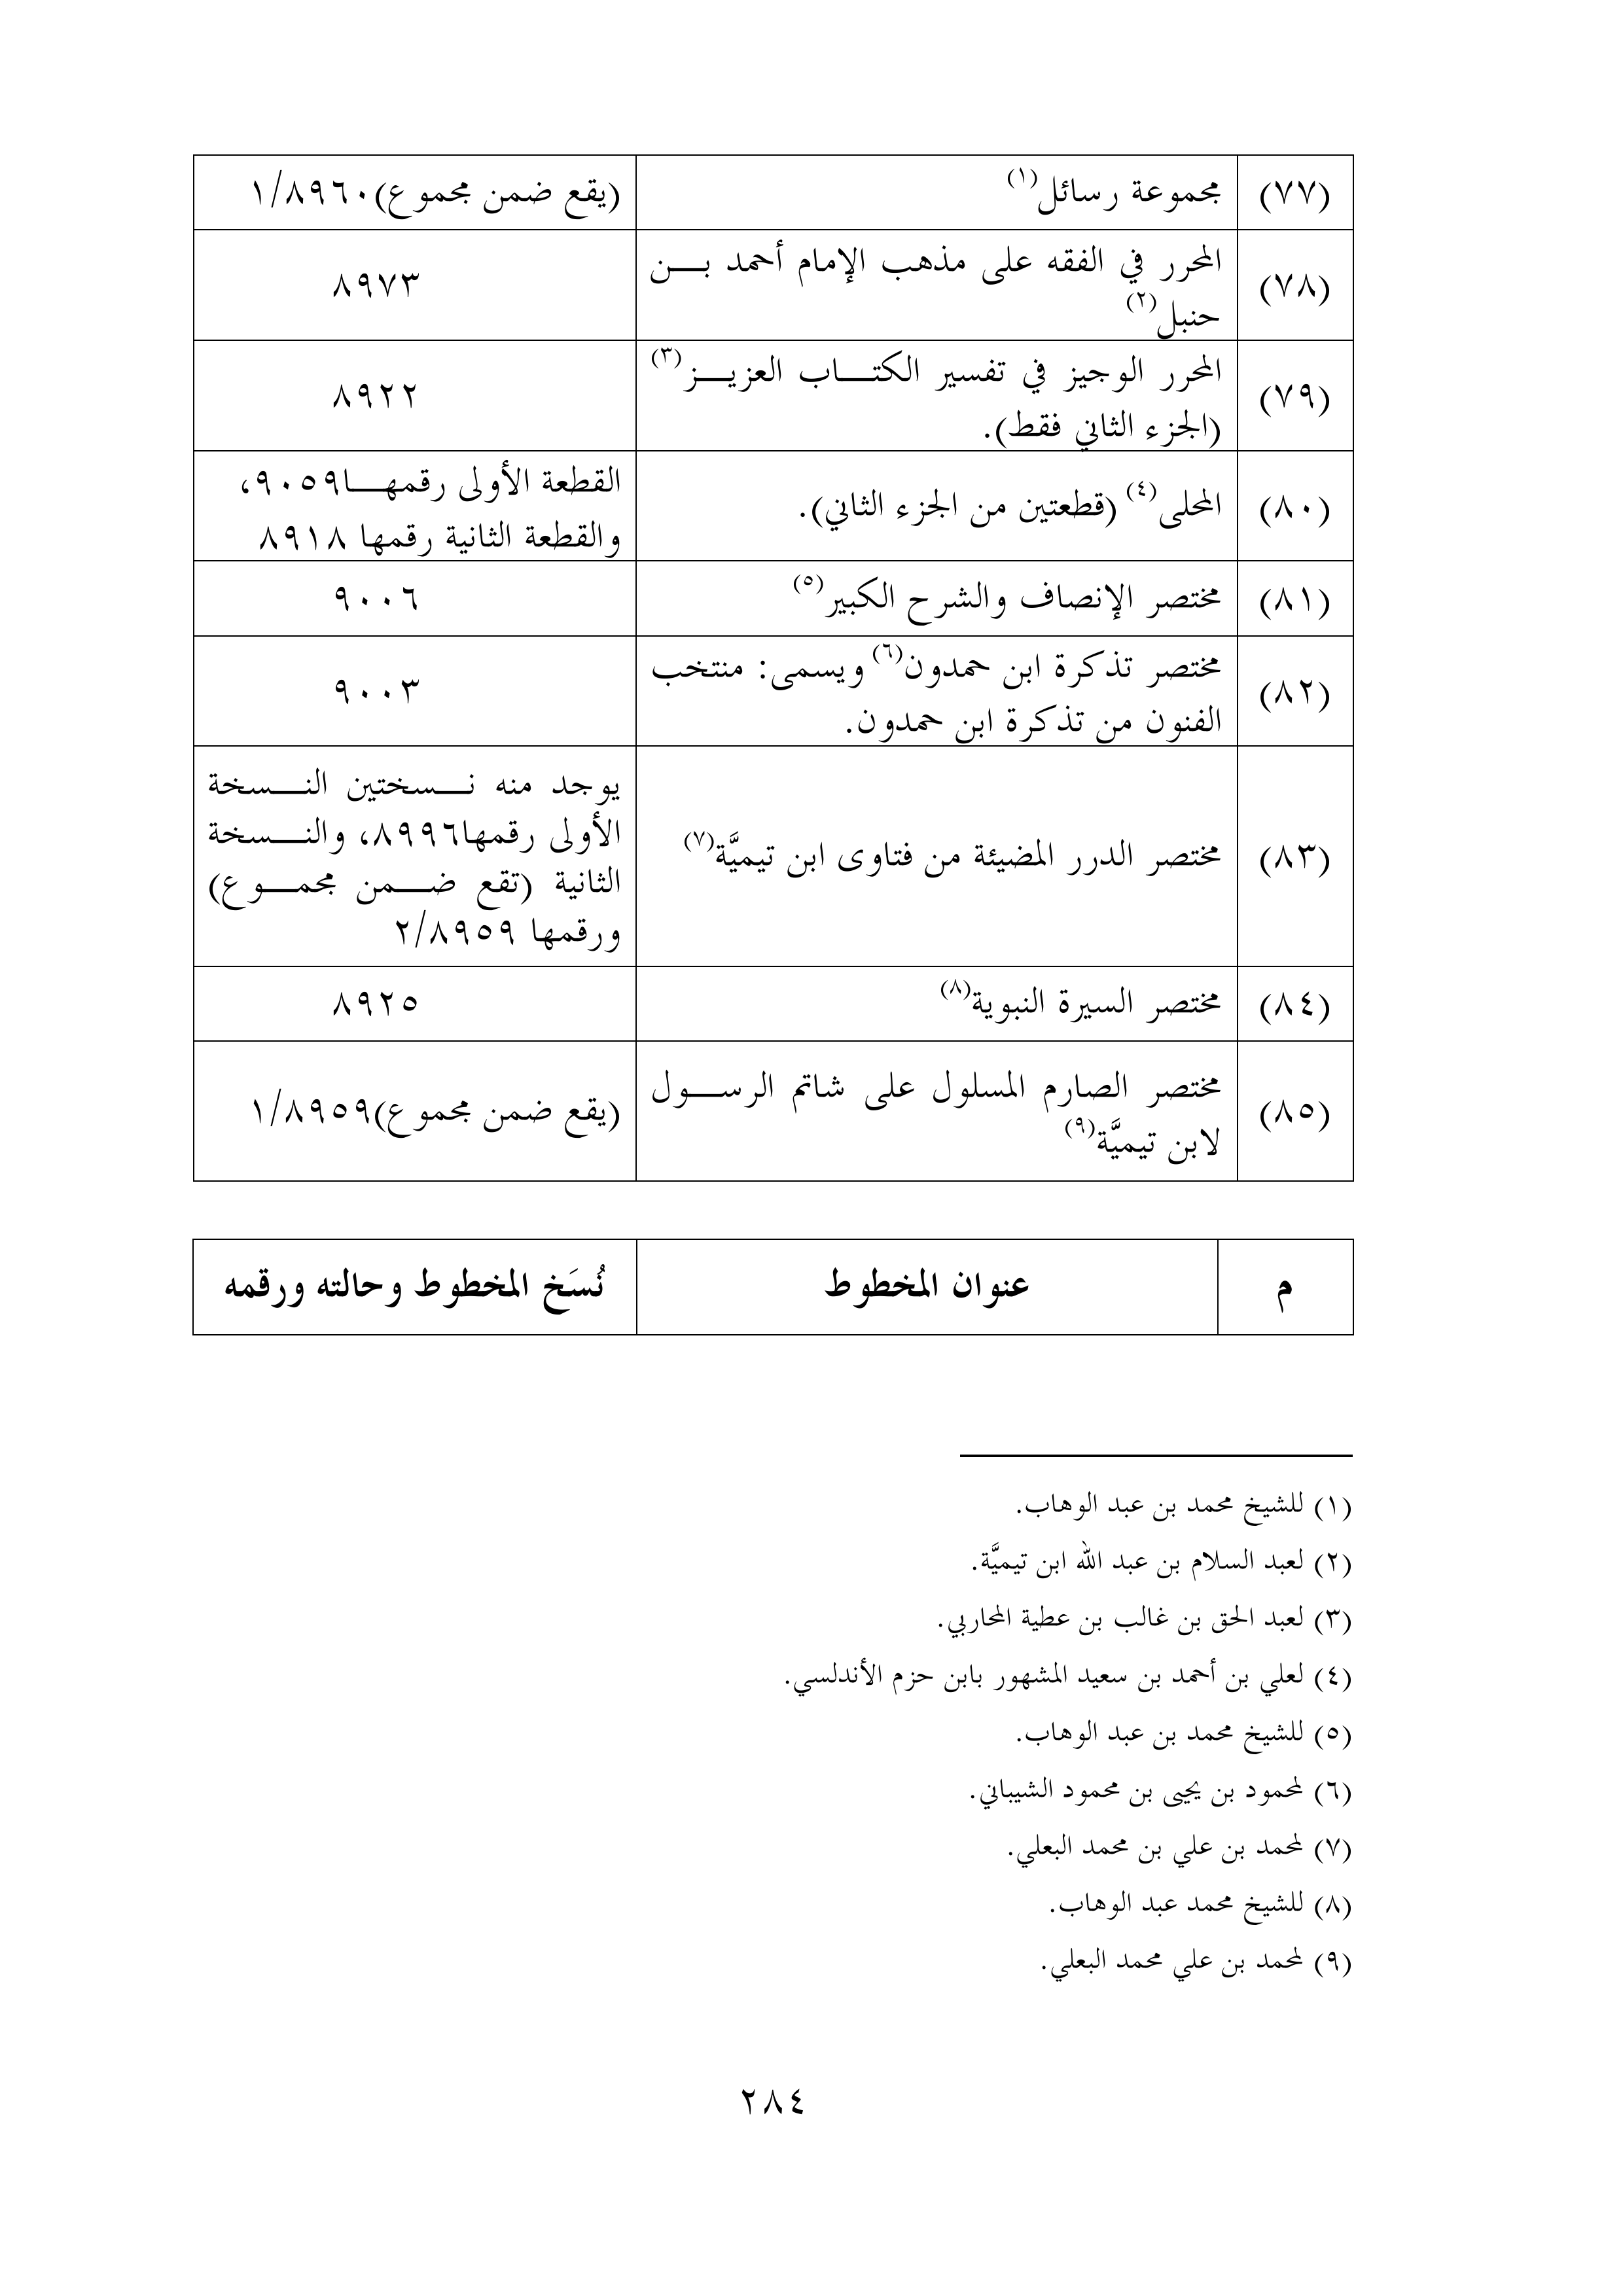 (٧٧) مجموعة رسائل(١) (يقع ضمن مجموع)١/٨٩٦٠
(٧٨) المحرر في الفقه على مذهب الإمام أحمد بن
حنبل(٢) ٨٩٧٣
(٧٩) المحرر الوجيز في تفسير الكتاب العزيز(٣)
(الجزء الثاني فقط). ٨٩٢٢
(٨٠) المحلى(٤) (قطعتين من الجزء الثاني).
القطعة الأولى رقمها٩٠٥٩،
والقطعة الثانية رقمها ٨٩١٨
(٨١) مختصر الإنصاف والشرح الكبير(٥) ٩٠٠٦
(٨٢) مختصر تذكرة ابن حمدون(٦) ويسمى: منتخب
الفنون من تذكرة ابن حمدون. ٩٠٠٣
(٨٣) مختصر الدرر المضيئة من فتاوى ابن تيميَّة(٧)
يوجد منه نسختين النسخة
الأولى رقمها٨٩٩٦، والنسخة
الثانية (تقع ضمن مجموع)
ورقمها ٢/٨٩٥٩
(٨٤) مختصر السيرة النبوية(٨) ٨٩٢٥
(٨٥) مختصر الصارم المسلول على شاتم الرسول
لابن تيميَّة(٩) (يقع ضمن مجموع)١/٨٩٥٩
م عنوان المخطوط نُسَخ المخطوط وحالته ورقمه
(١) للشيخ محمد بن عبد الوهاب.
(٢) لعبد السلام بن عبد الله ابن تيميَّة.
(٣) لعبد الحق بن غالب بن عطية المحاربي.
(٤) لعلي بن أحمد بن سعيد المشهور بابن حزم الأندلسي.
(٥) للشيخ محمد بن عبد الوهاب.
(٦) لمحمود بن يحيى بن محمود الشيباني.
(٧) لمحمد بن علي بن محمد البعلي.
(٨) للشيخ محمد عبد الوهاب.
(٩) لمحمد بن علي محمد البعلي.
٢٨٤